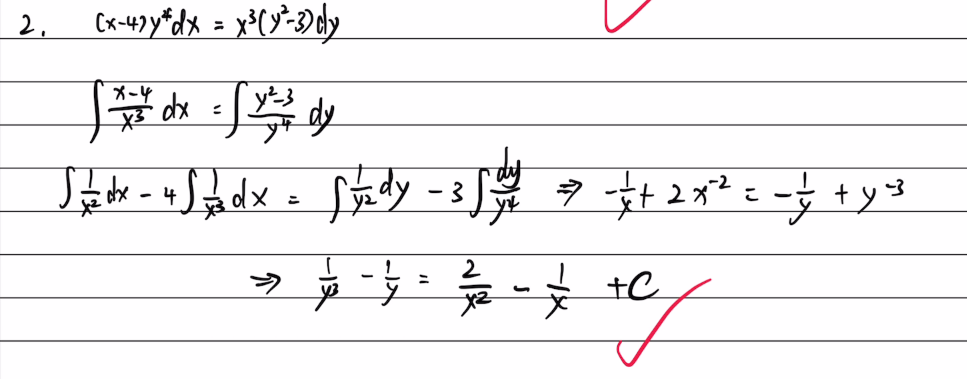 2. (x-4)y⁴dx = x³(y²-3)dy
∫ (x-4)/x³ dx = ∫ (y²-3)/y⁴ dy
∫ 1/x² dx - 4∫ 1/x³ dx = ∫ 1/y² dy - 3∫ dy/y⁴ ⇒ -1/x + 2x⁻² = -1/y + y⁻³
⇒ 1/y³ - 1/y = 2/x² - 1/x + C